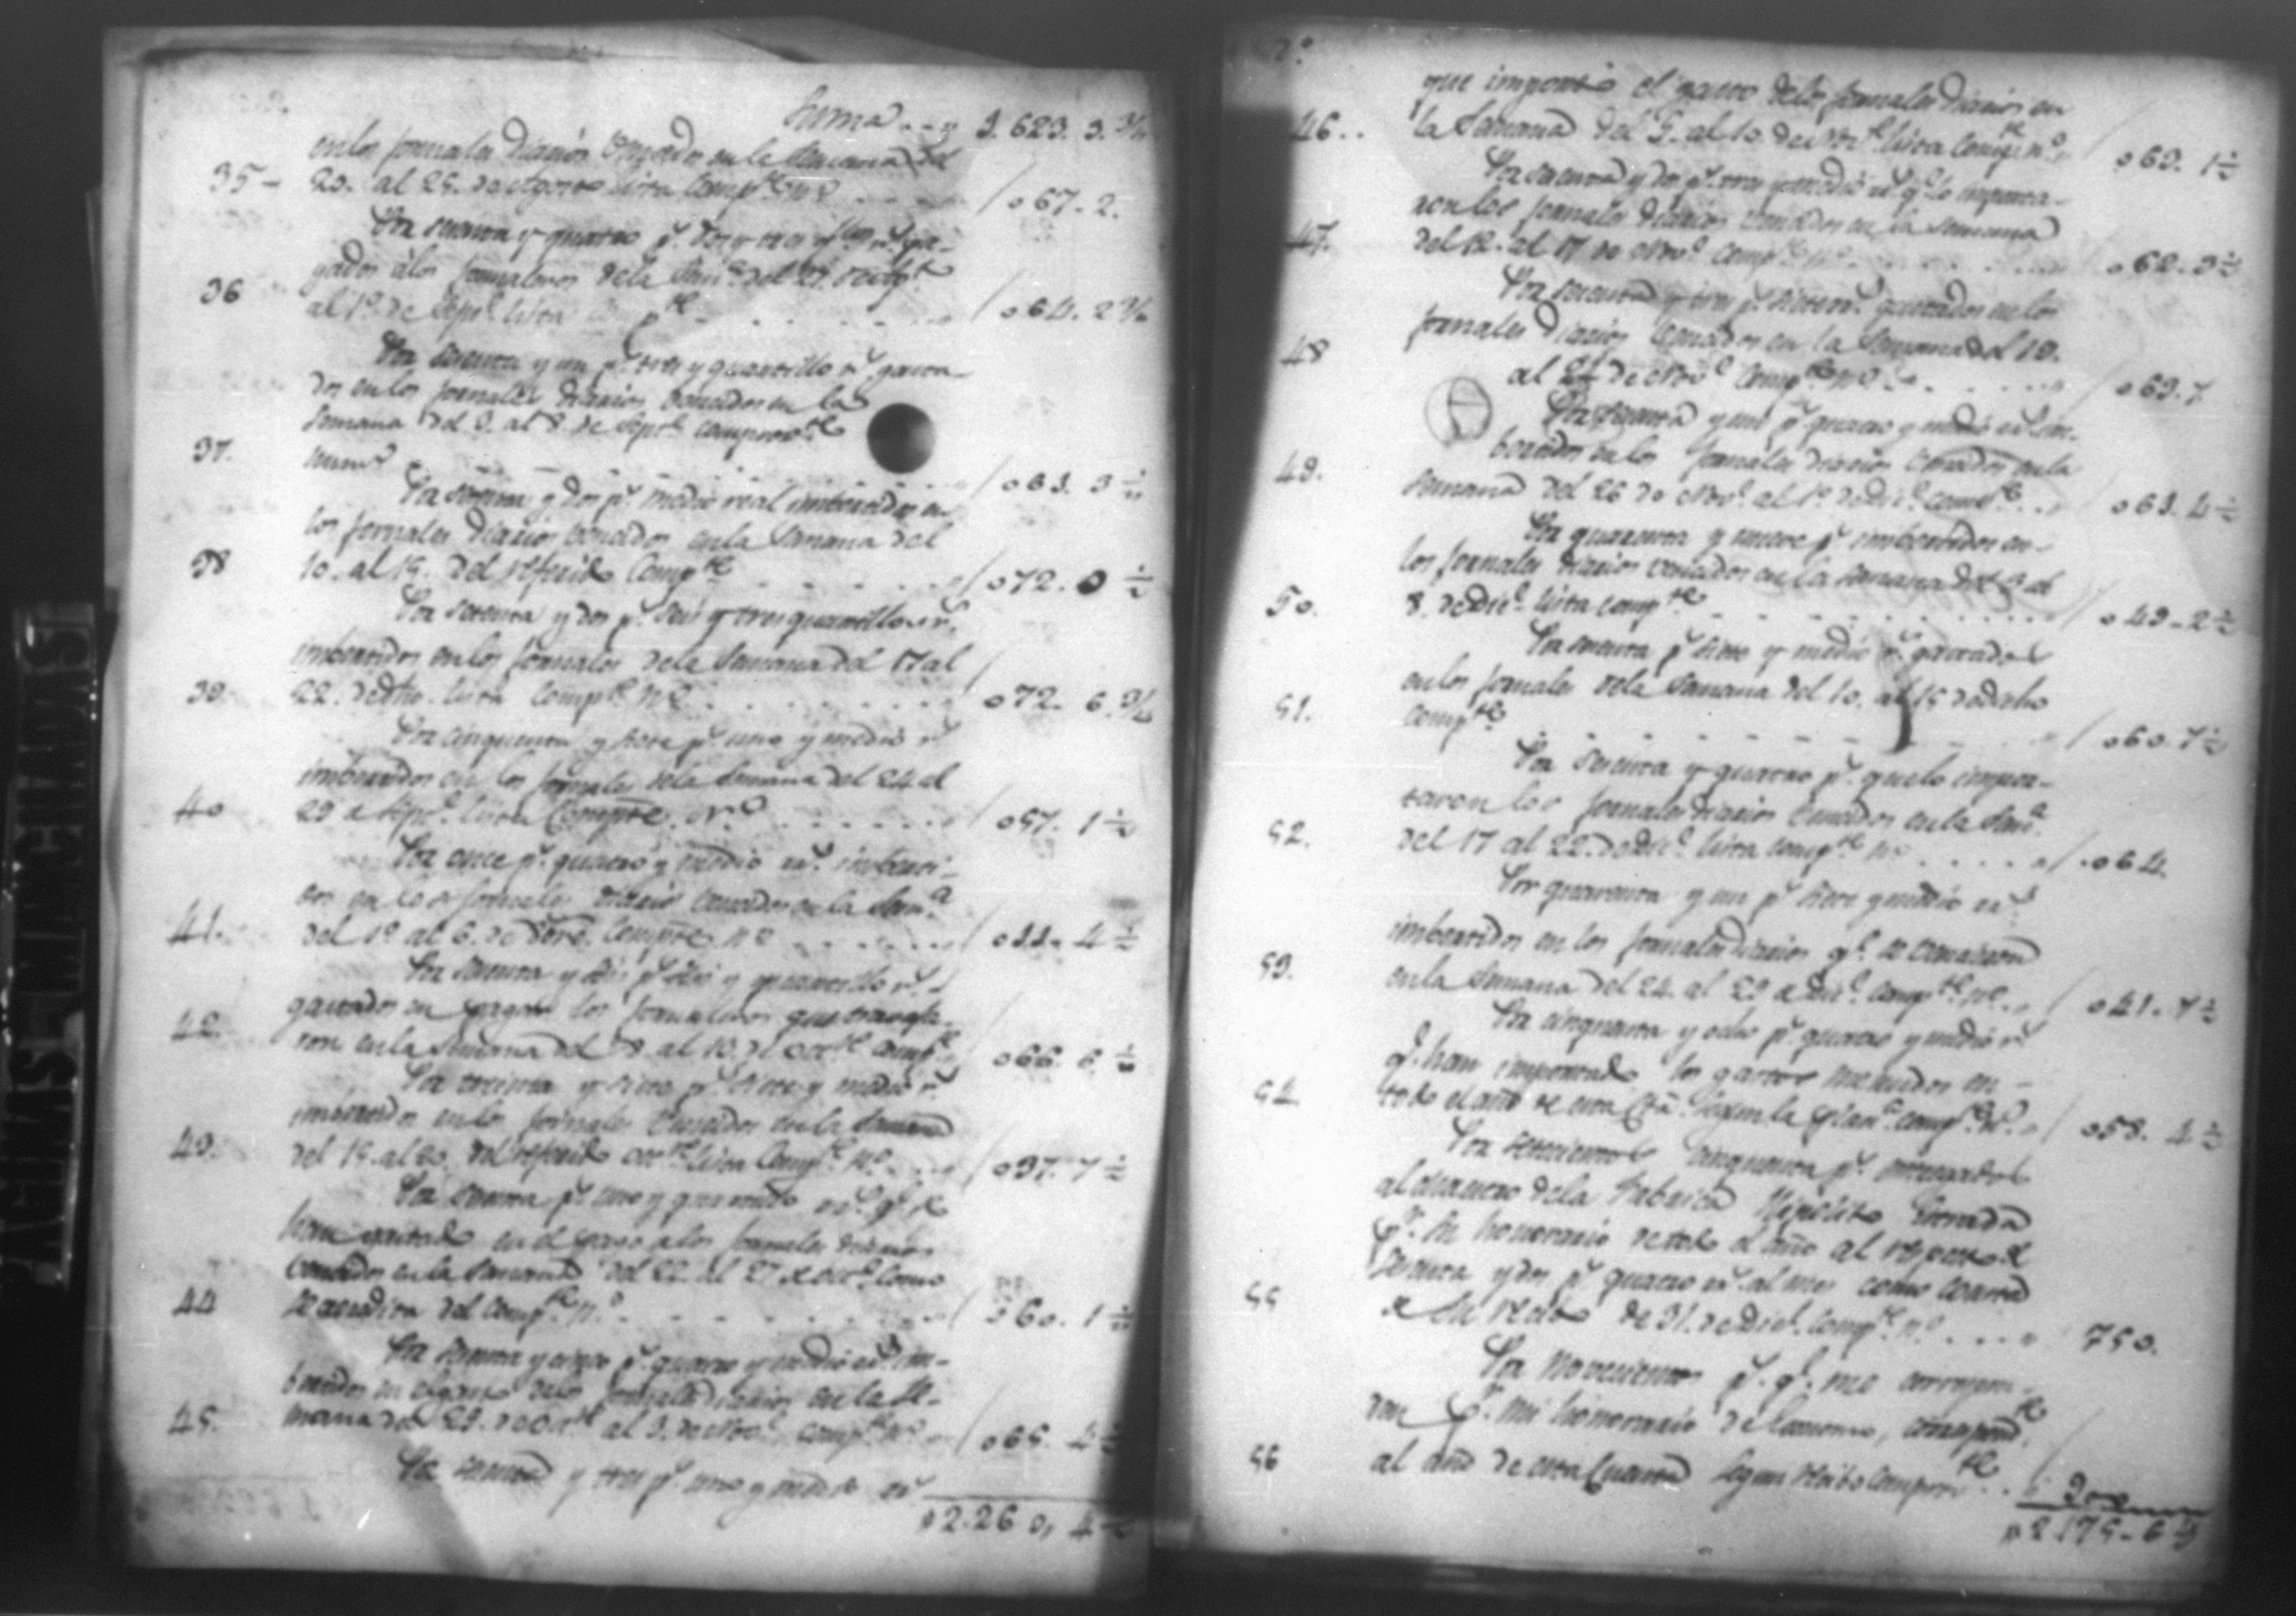 Suma... 1.623.3.¾
en los jornales diarios vencidos en la semana del
35- 20. al 25. de Agosto lista comp.te n.o . . . . . 067.2.
Por sesenta y quatro p.s dos y tres q.llos r.s pa-
gados à los jornaleros de la sem.a del 27. de Ag.to
36 al 1.o de Sep.e lista comp.te . . . . . 064.2¾
Por sesenta y un p.s tres y quartillo r.s gasta-
dos en los jornales diarios vencidos en la
semana del 3. al 8. de Sept.e comprov.te
37. num.o . . . . . 061.3½
Por setenta y dos p.s medio real imbertidos en
los jornales diarios vencidos en la semana del
38 10. al 15. del referido comp.te . . . . . 072.0½
Por setenta y dos p.s seis y tres quartillos r.s
imbertidos en los jornales de la semana del 17 al
39. 22. de dho. lista comp.te n.o . . . . . 072.6.¾
Por cinquenta y siete p.s uno y medio r.s
imbertidos en los jornales de la semana del 24 al
40 29 de Sep.e lista Compte. N.o . . . . . 057.1½
Por once p.s quatro y medio r.s imberti-
dos en los jornales diarios vencidos en la sem.a
41. del 1.o al 6. de Compte. n.o . . . . . 011.4½
Por sesenta y seis p.s seis y quartillo r.s
gastados en pagar los jornaleros que travaja-
42. ron en la semana del 8. al 13. de oct.e comp.te 066.6½
Por treinta y siete p.s siete y medio r.s
imbertidos en los jornales vencidos en la semana
43. del 15. al 20. del referido oct.e lista comp.te n.o . . 037.7½
Por sesenta p.s uno y quartillo r.s q.e se
han gastado en el pago a los jornales diarios
vencidos en la semana del 22. al 27 de oct.e como
44 se acredita del comp.te n.o . . . . . 060.1½
Por sesenta y cinco p.s quatro y medio r.s im-
bertidos en el pago de los jornales diarios en la se-
45. mana del 29. de Oct.e al 3. de Nov.e comp.te n.o 065.4½
Por sesenta y tres p.s uno y medio r.s
p 2.260,4½
7.o
que importó el gasto de los jornales diarios en
46.. la semana del 5. al 10. de Nov.e lista comp.te n.o 063.1½
Por sesenta y dos p.s tres y medio r.s q.e lo importa-
ron los jornales diarios vencidos en la semana
47. del 12. al 17 de Nov.e comp.te n.o . . . . . 062.3½
Por sesenta y tres p.s siete r.s gastados en los
jornales diarios vencidos en la semana del 19.
48 al 24 de Nov.e comp.te n.o . . . . . 063.7
Por sesenta y un p.s quatro y medio r.s im-
bertidos en los jornales diarios vencidos en la
49. semana del 26 de Nov.e al 1.o de Dic.e comp.te . . . 061.4½
Por quarenta y nueve p.s imbertidos en
los jornales diarios vencidos en la semana del 3 al
50. 8. de Dic.e lista comp.te . . . . . 049.2½
Por sesenta p.s siete y medio r.s gastados
en los jornales de la semana del 10. al 15 de dicho
51. comp.te . . . . . 060.7½
Por sesenta y quatro p.s que lo impor-
taron los jornales diarios vencidos en la sem.a
52. del 17 al 22. de Dic.e lista comp.te n.o . . . . 064.
Por quarenta y un p.s siete y medio r.s
imbertidos en los jornales diarios q.e se vencieron
53. en la semana del 24. al 29 de Dic.e comp.te n.o . . 041.7½
Por cinquenta y ocho p.s quatro y medio r.s
q.e han importado los gastos menudos en
54. todo el año de esta Cta. segun la plan.a comp.te n.o 058.4½
Por setecientos cinquenta p.s entregados
al maestro de la Fabrica Hipolito
p.r su honorario de todo el año al respecto de
sesenta y dos p.s quatro r.s al mes como consta
55 de su recivo de 31. de Dic.e comp.te n.o . . . . 750.
Por novecientos p.s q.e me correspon-
den p.r mi honorario de correspond.te
56 al año de esta Cuenta segun recibo comprov.te . . 900
p 2.175.6½